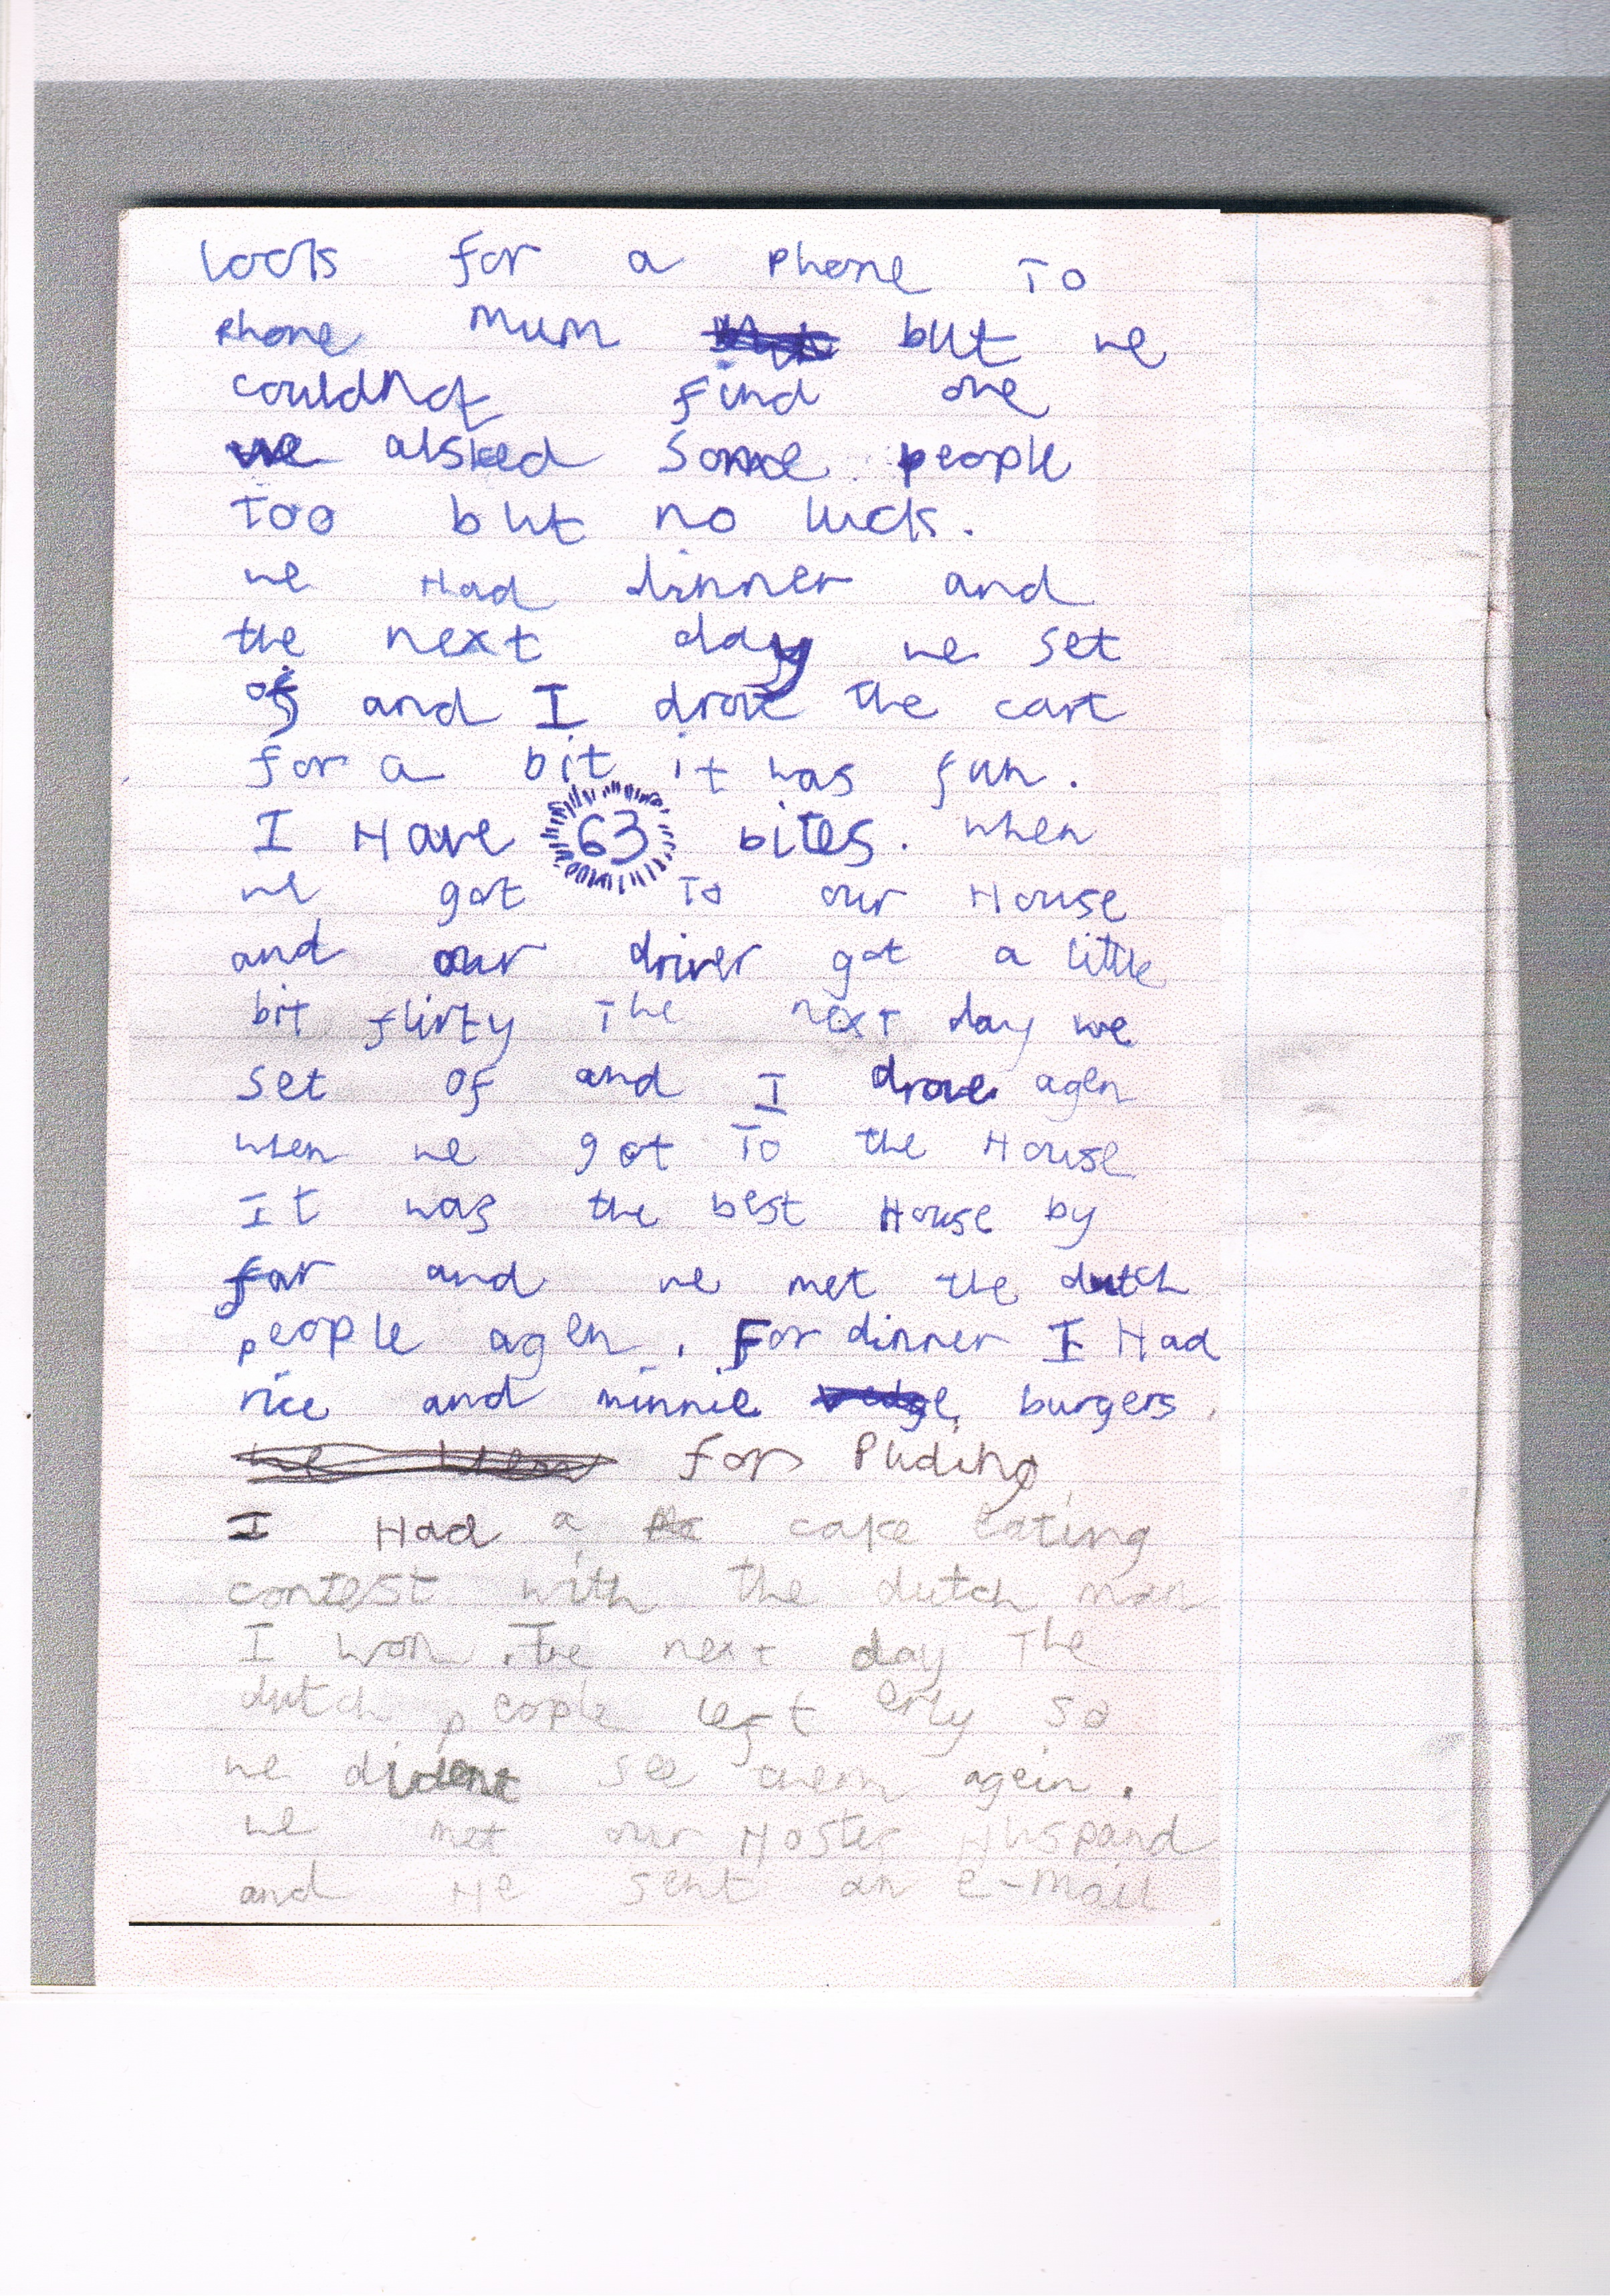 look for a phone To
phone mum but we
couldnot find one
we alsked some people
Too but no luck.
we Had dinner and
the next day we set
of and I drove the cart
for a bit it was fun.
I Have 63 bites. when
we got To our House
and our driver got a little
bit flirty The next day we
set of and I drove agen
when we got To the House
It was the best House by
far and we met the dutch
people agen. For dinner I Had
rice and minnie burgers.
for Puding
I Had a cake eating
contest with the dutch man
I won. The next day The
dutch people left erly so
we dident see them agein.
we met our Hoster Huspand
and He sent an e-mail